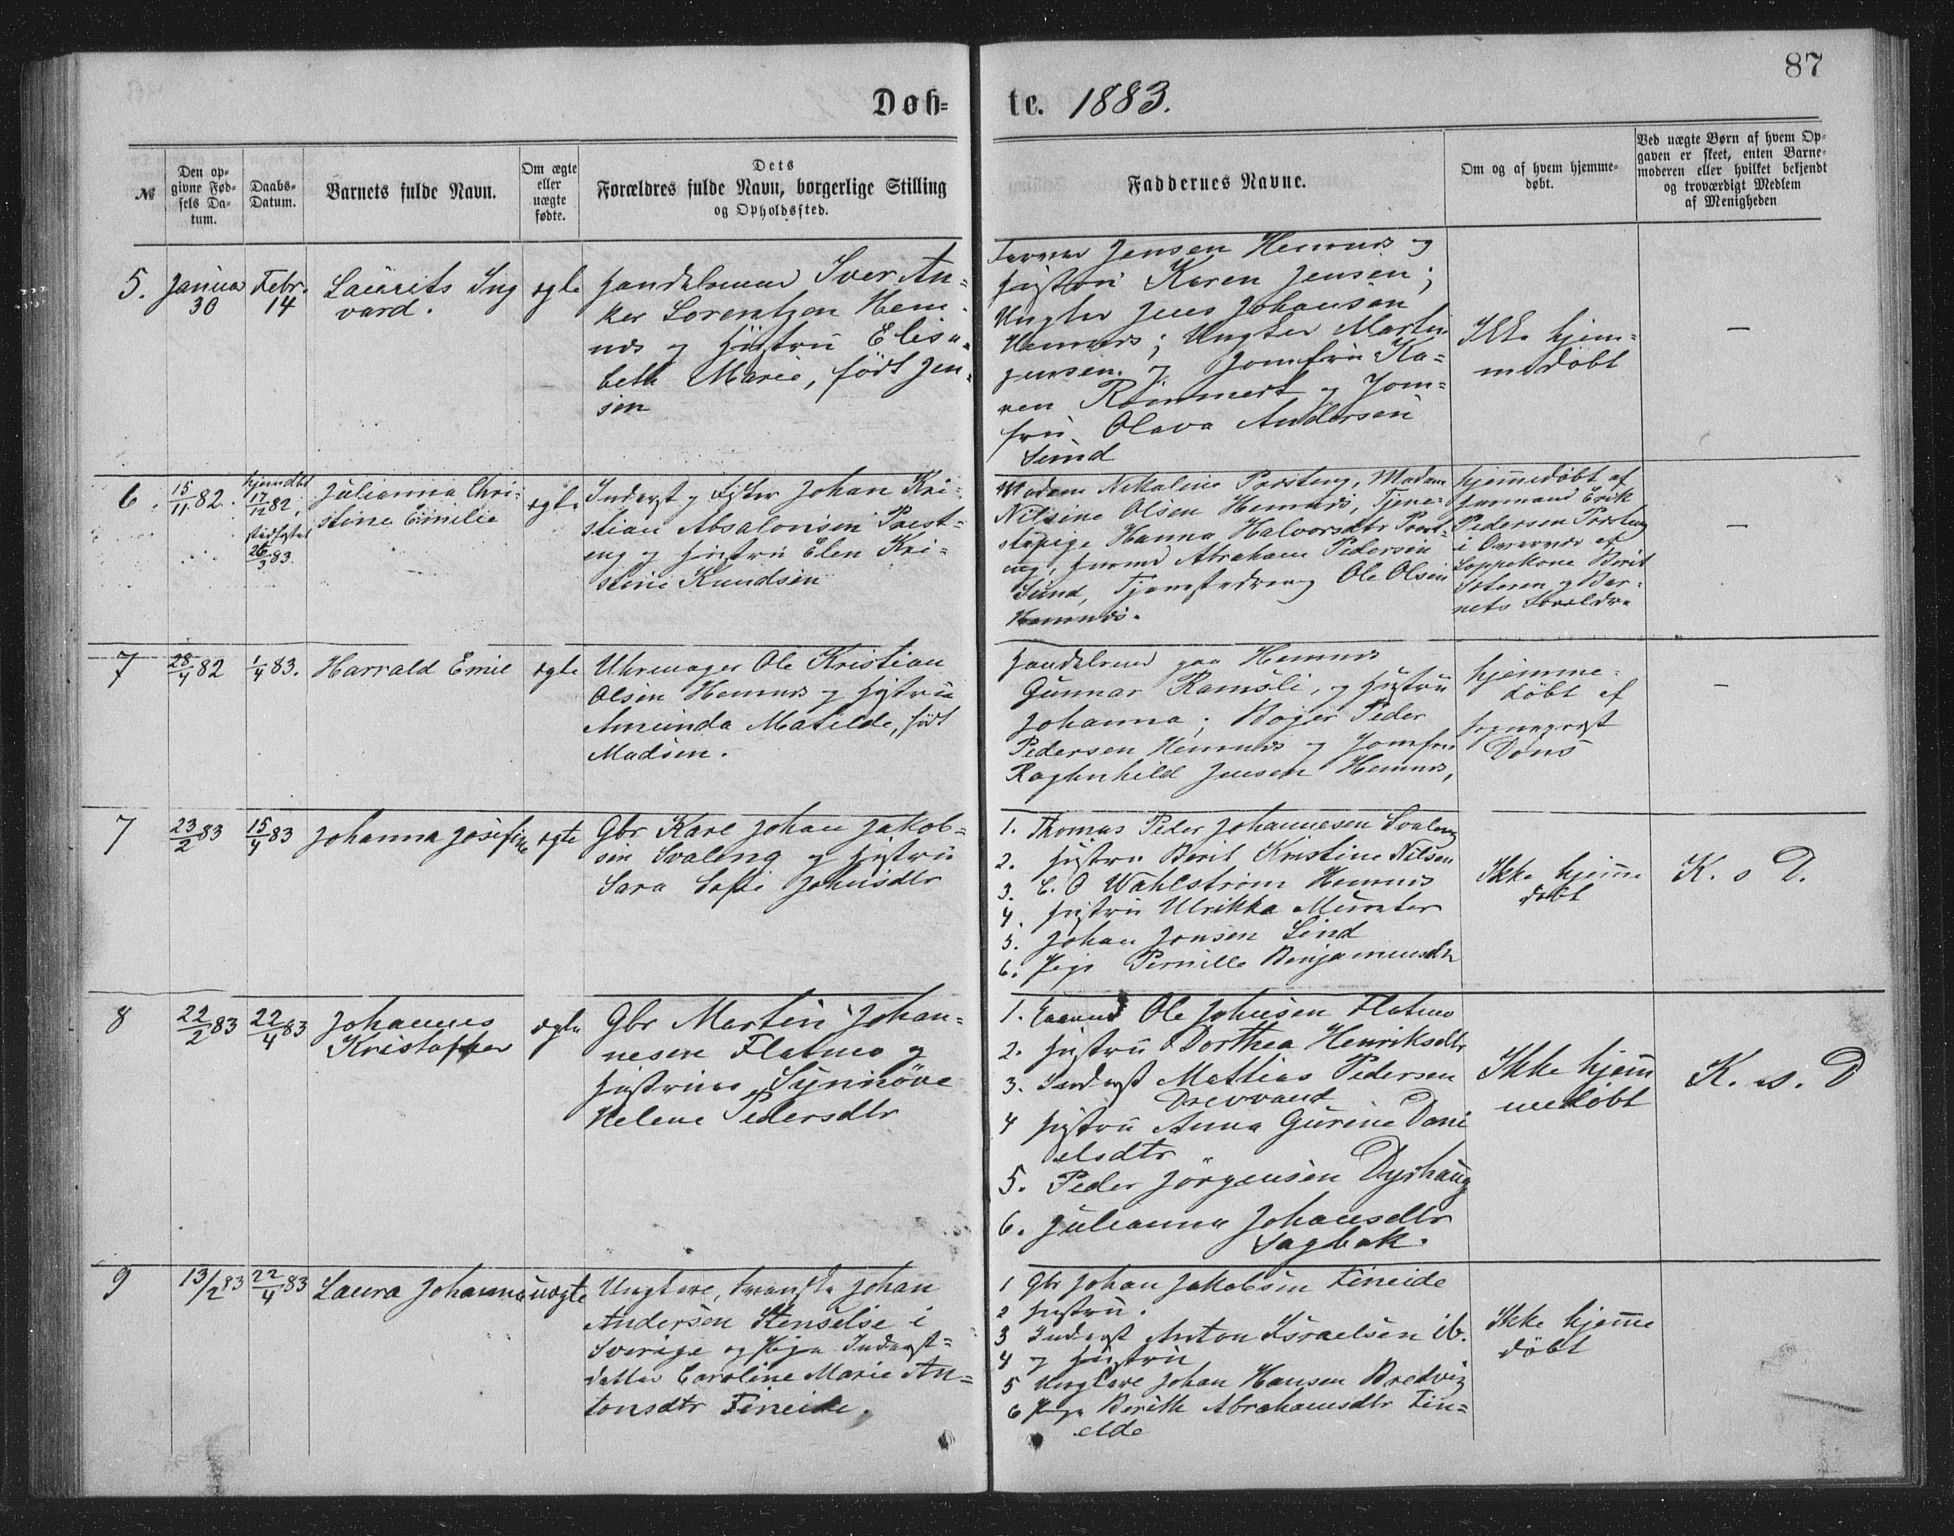 87
Døb- te. 1883.
№
Den op-
givne Fød-
sels Da-
tum.
Daabs-
Datum.
Barnets fulde Navn.
Om ægte
eller
uægte
fødte.
Dets
Forældres fulde Navn, borgerlige Stilling
og Opholdssted.
Faddernes Navne.
Om og af hvem hjemme-
døbt.
Ved uægte Børn af hvem Op-
gaven er skeet, enten Barne-
moderen eller hvilket bekjendt
og troværdigt Medlem
af Menigheden
5.
Januar
30
Febr.
14
Laurits Ing
vard.
ægte
Handelsmand Iver An-
ker Lorentzen Hem-
nes og Hustru Elisa-
beth Marie, født Jen-
sen
Jensen Hemnes og
Hustru Karen Jensen;
Ungkar Jens Johansen
Hemnes; Ungkar Martin
Jensen og Jomfru Ka-
ren Rimmert og Jom-
fru Olava Andersen
Sund
Ikke hjem-
medøbt
—
6.
15/11 82.
hjemdbt
17/12 82,
stadfæstet
26/3 83.
Julianna Chri-
stine Emilie
ægte
Inderst og Fisker Johan Kri-
stian Absalonsen Prest-
eng og Hustru Elen Kri-
stine Knudsen
Madam Nikoline Præsteng, Madam
Nilsine Olsen Hemnes, Tjene-
stepige Hanna Halvorsdtr Prest-
eng, Abraham Pedersen
Sund, Tjenestedreng Ole Olsen
Hemnes.
hjemmedøbt af
Gaarmand Erik
Pedersen Præsteng
i Overvær af
Loppekone Berit
og Bar-
nets Forældre
—
7
28/4 82
1/4 83.
Harrald Emil
ægte
Uhrmager Ole Kristian
Olsen Hemnes og Hustru
Amunda Matilde, født
Madsen.
Handelsmand paa Hemnes
Gunnar Ramsli, og Hustru
Johanna; Bager Peder
Pedersen Hemnes og Jomfru
Raghnhild Jensen Hemnes,
hjemme-
døbt af
Sogneprest
Døns
—
7
23/2 83
15/4 83
Johanna Josefine
ægte
Gbr Karl Johan Jakob-
sen Svaleng og Hustru
Sara Sofi Johnsdtr
1. Thomas Peder Johannesen Svaleng
2. Hustru Berit Kristine Nilsen
3. C. O Wahlstrøm Hemnes
4. Hustru Ulrikka Munter
5. Johan Jonsen Sund
6. Pige Pernille Benjaminsdtr
Ikke hjemme
døbt
K. o D.
8
22/2 83
22/4 83
Johannes
Kristoffer
ægte
Gbr Martin Johan-
nesen Flatmo og
Hustru Synnøve
Helene Pedersdtr
1. Gaarmd Ole Johnsen Flatmo
2. Hustru Dorthea Henriksdtr
3. Inderst Mattias Pedersen
Drevvand
4 Hustru Anna Gurine Dani
elsdtr
5. Peder Jörgensen Dyrhaug
6. Julianna Johansdtr
Sagbak.
Ikke hjem
medøbt
K. o. D
9
13/2 83
22/4 83
Laura Johanna
uægte
Ungkare, svenske Johan
Andersen Stenselse i
Sverige og Pige Inderst-
datter Caroline Marie An-
tonsdtr Fineide.
1 Gbr Johan Jakobsen Fineide
2 Hustru.
3 Inderst Anton Israelsen ib.
4 og Hustru
5 Ungkare Johan Hansen Bredvig
6 Pige Berith Abrahamsdtr Fin-
eide
Ikke hjemme
døbt